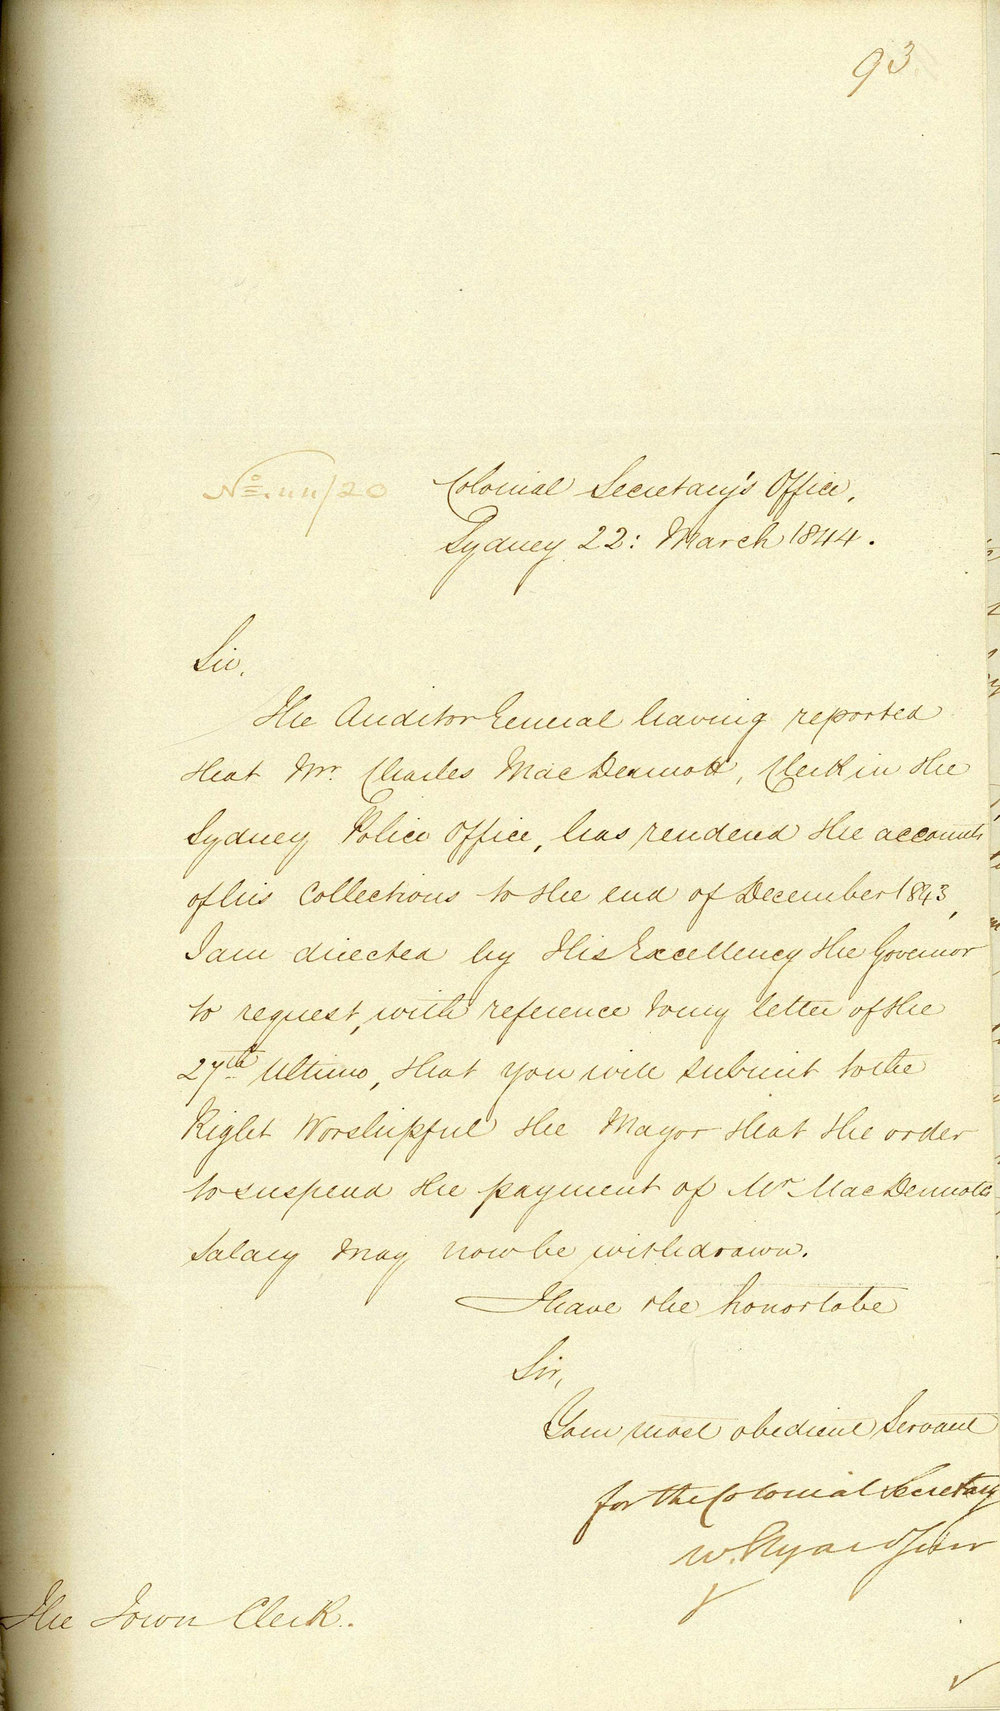 93
No. 44/20
Colonial Secretary's Office,
Sydney 22: March 1844.
Sir,
The Auditor General having reported
that Mr. Charles MacDermott, Clerk in the
Sydney Police Office, has rendered the accounts
of his Collections to the end of December 1843,
I am directed by His Excellency the Governor
to request, with reference to my letter of the
27th Ultimo, that you will submit to the
Right Worshipful the Mayor that the order
to suspend the payment of Mr MacDermott's
Salary may now be withdrawn.
I have the honor to be
Sir,
Your most obedient Servant
for the Colonial Secretary
W.
The Town Clerk.